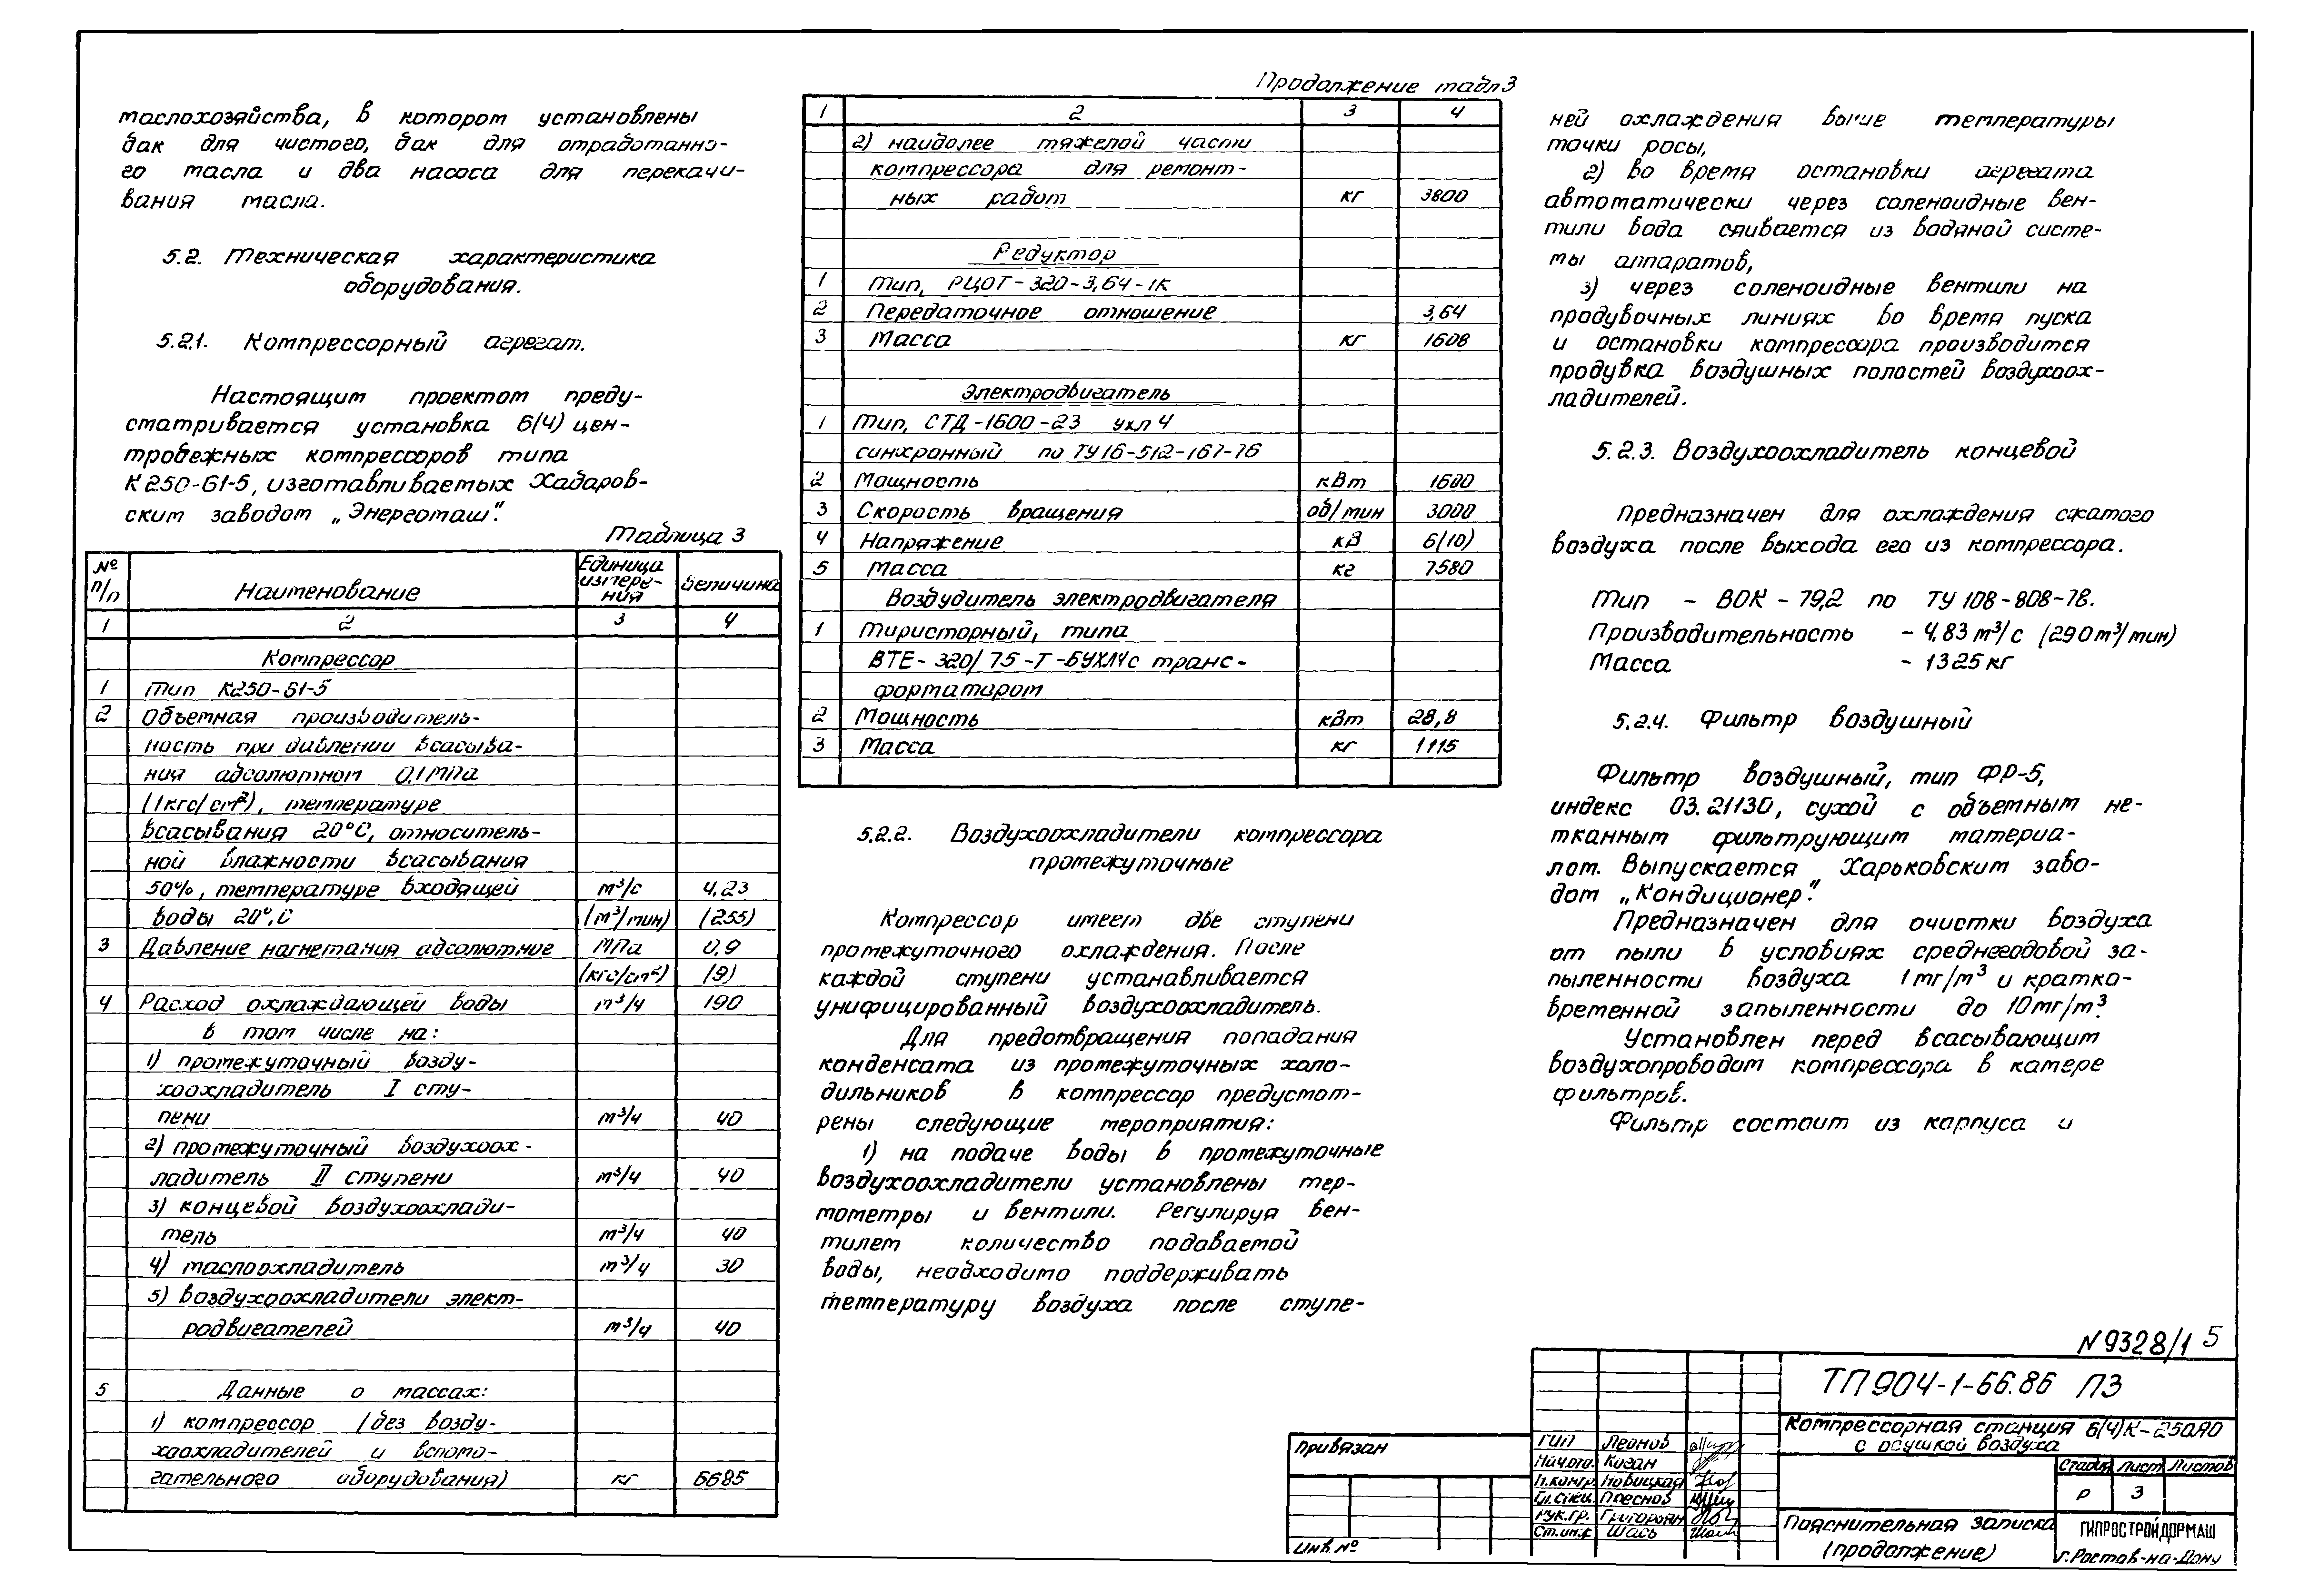 маслохозяйства, в котором установлены
бак для чистого, бак для отработанно-
го масла и два насоса для перекачи-
вания масла.
5.2. Техническая характеристика
оборудования.
5.2.1. Компрессорный агрегат.
Настоящим проектом преду-
сматривается установка 6(4) цен-
тробежных компрессоров типа
К250-61-5, изготавливаемых Хабаров-
ским заводом „Энергомаш".
Таблица 3
№ п/п Наименование Единица измере-ния Величина
1 2 3 4
Компрессор
1 Тип К250-61-5
2 Объемная производитель-
ность при давлении всасыва-
ния абсолютном 0,1 МПа
(1кгс/см²), температуре
всасывания 20°С, относитель-
ной влажности всасывания
50%, температуре входящей м³/с 4,23
воды 20°,С (м³/мин) (255)
3 Давление нагнетания абсолютное МПа 0,9
(кгс/см²) (9)
4 Расход охлаждающей воды м³/ч 190
в том числе на:
1) промежуточный возду-
хоохладитель I сту-
пени м³/ч 40
2) промежуточный воздухоох-
ладитель II ступени м³/ч 40
3) концевой воздухоохлади-
тель м³/ч 40
4) маслоохладитель м³/ч 30
5) воздухоохладители элект-
родвигателей м³/ч 40
5 Данные о массах:
1) компрессор (без возду-
хоохладителей и вспомо-
гательного оборудования) кг 6685
Продолжение табл 3
1 2 3 4
2) наиболее тяжелой части
компрессора для ремонт-
ных работ кг 3800
Редуктор
1 Тип, РЦОТ-320-3,64-1К
2 Передаточное отношение 3,64
3 Масса кг 1608
Электродвигатель
1 Тип, СТД-1600-23 ухл 4
синхронный по ТУ16-512-167-76
2 Мощность кВт 1600
3 Скорость вращения об/мин 3000
4 Напряжение кВ 6(10)
5 Масса кг 7580
Возбудитель электродвигателя
1 Тиристорный, типа
ВТЕ-320/75-Т-БУХЛ4с транс-
форматором
2 Мощность кВт 28,8
3 Масса кг 1115
5.2.2. Воздухоохладители компрессора
промежуточные
Компрессор имеет две ступени
промежуточного охлаждения. После
каждой ступени устанавливается
унифицированный воздухоохладитель.
Для предотвращения попадания
конденсата из промежуточных холо-
дильников в компрессор предусмот-
рены следующие мероприятия:
1) на подаче воды в промежуточные
воздухоохладители установлены тер-
мометры и вентили. Регулируя вен-
тилем количество подаваемой
воды, необходимо поддерживать
температуру воздуха после ступе-
ней охлаждения выше температуры
точки росы,
2) во время остановки агрегата
автоматически через соленоидные вен-
тили вода сливается из водяной систе-
мы аппаратов,
3) через соленоидные вентили на
продувочных линиях во время пуска
и остановки компрессора производится
продувка воздушных полостей воздухоох-
ладителей.
5.2.3. Воздухоохладитель концевой
Предназначен для охлаждения сжатого
воздуха после выхода его из компрессора.
Тип - ВОК-79,2 по ТУ 108-808-78.
Производительность - 4,83 м³/с (290м³/мин)
Масса - 1325 кг
5.2.4. Фильтр воздушный
Фильтр воздушный, тип ФР-5,
индекс 03.21130, сухой с объемным не-
тканным фильтрующим материа-
лом. Выпускается Харьковским заво-
дом „Кондиционер".
Предназначен для очистки воздуха
от пыли в условиях среднегодовой за-
пыленности воздуха 1мг/м³ и кратко-
временной запыленности до 10мг/м³.
Установлен перед всасывающим
воздухопроводом компрессора в камере
фильтров.
Фильтр состоит из корпуса и
N 9328/1 5
ТП 904-1-66.86 ПЗ
Компрессорная станция 6(4)К-250А0
с осушкой воздуха
Привязан
Инв №
ГИП Леонов
Нач.отд. Коган
Н.контр. Новицкая
Гл.спец. Плеснов
Рук.гр. Григорян
Ст.инж Шась
Стадия Лист Листов
Р 3
Пояснительная записка
(продолжение)
ГИПРОСТРОЙДОРМАШ
г.Ростов-на-Дону